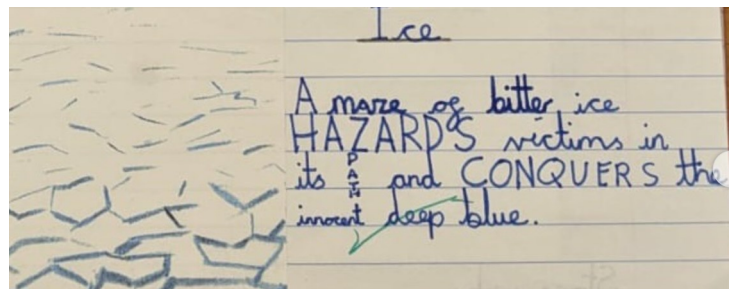 Ice
A maze of bitter ice
HAZARDS victims in
its PATH and CONQUERS the
innocent deep blue.